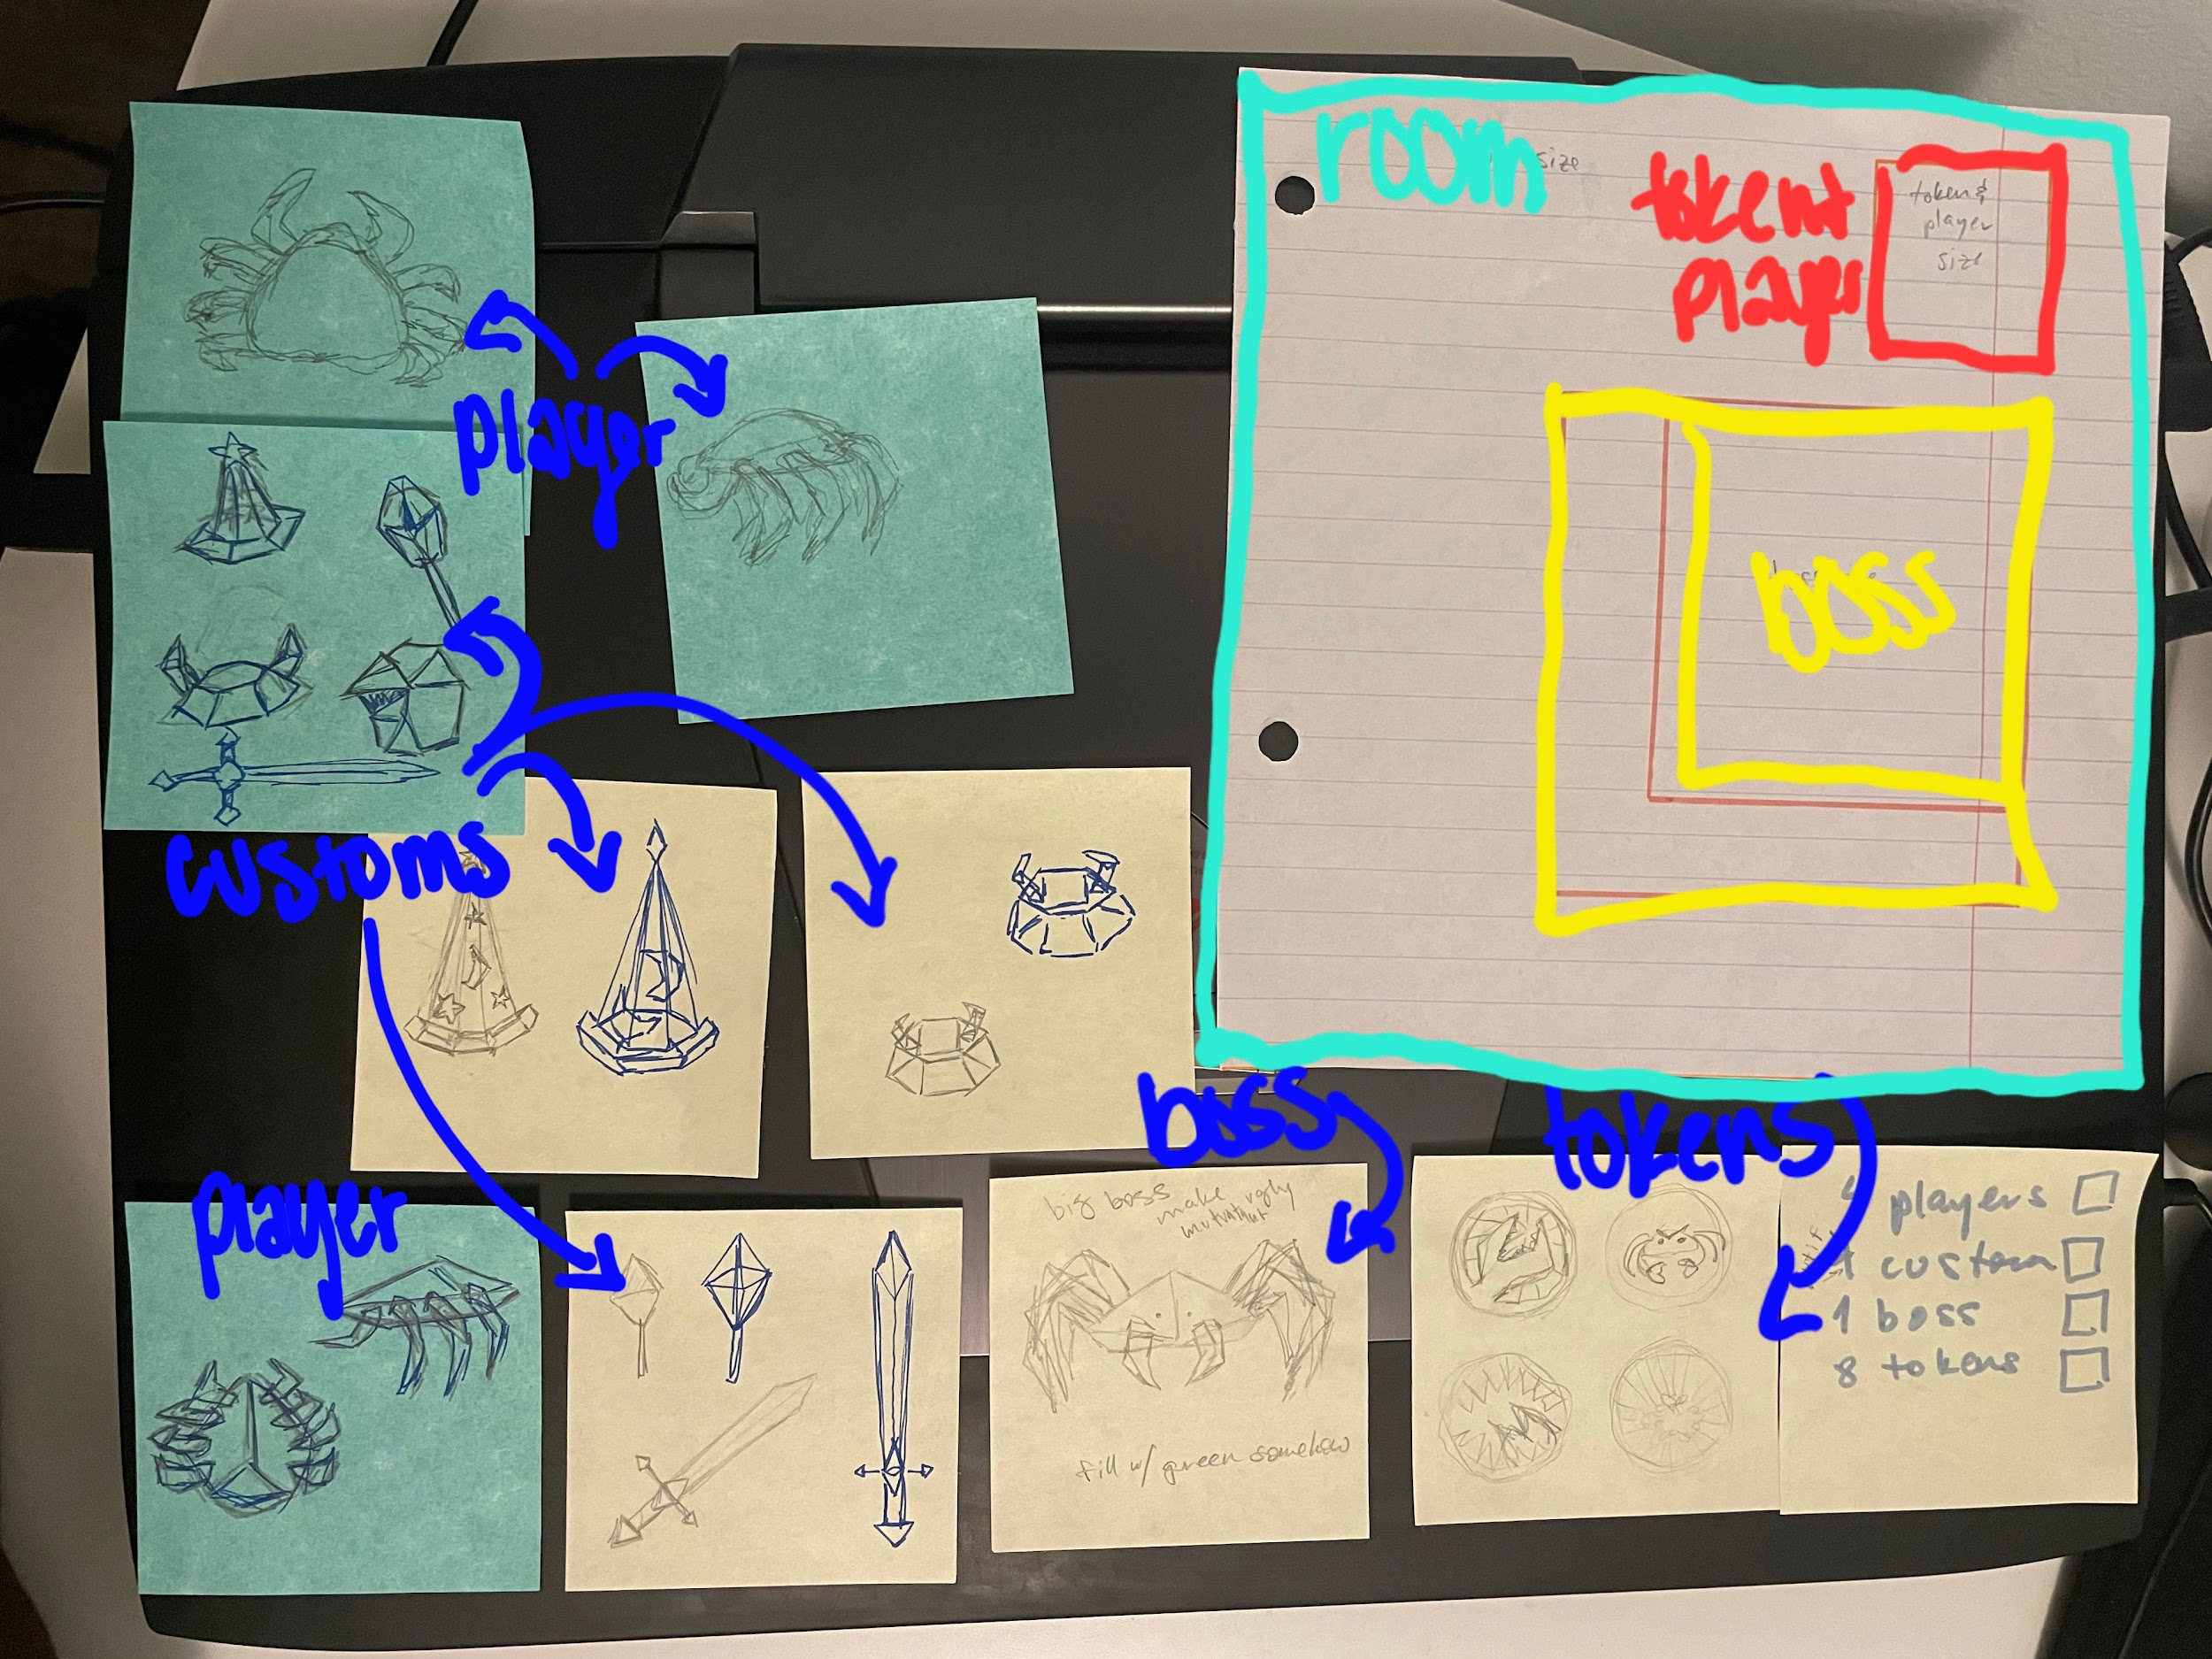 room
size
token
player
token &
player
size
boss
player
customs
boss
tokens
player
big boss make ugly
mutant
fill w/ green somehow
players
custom
1 boss
8 tokens